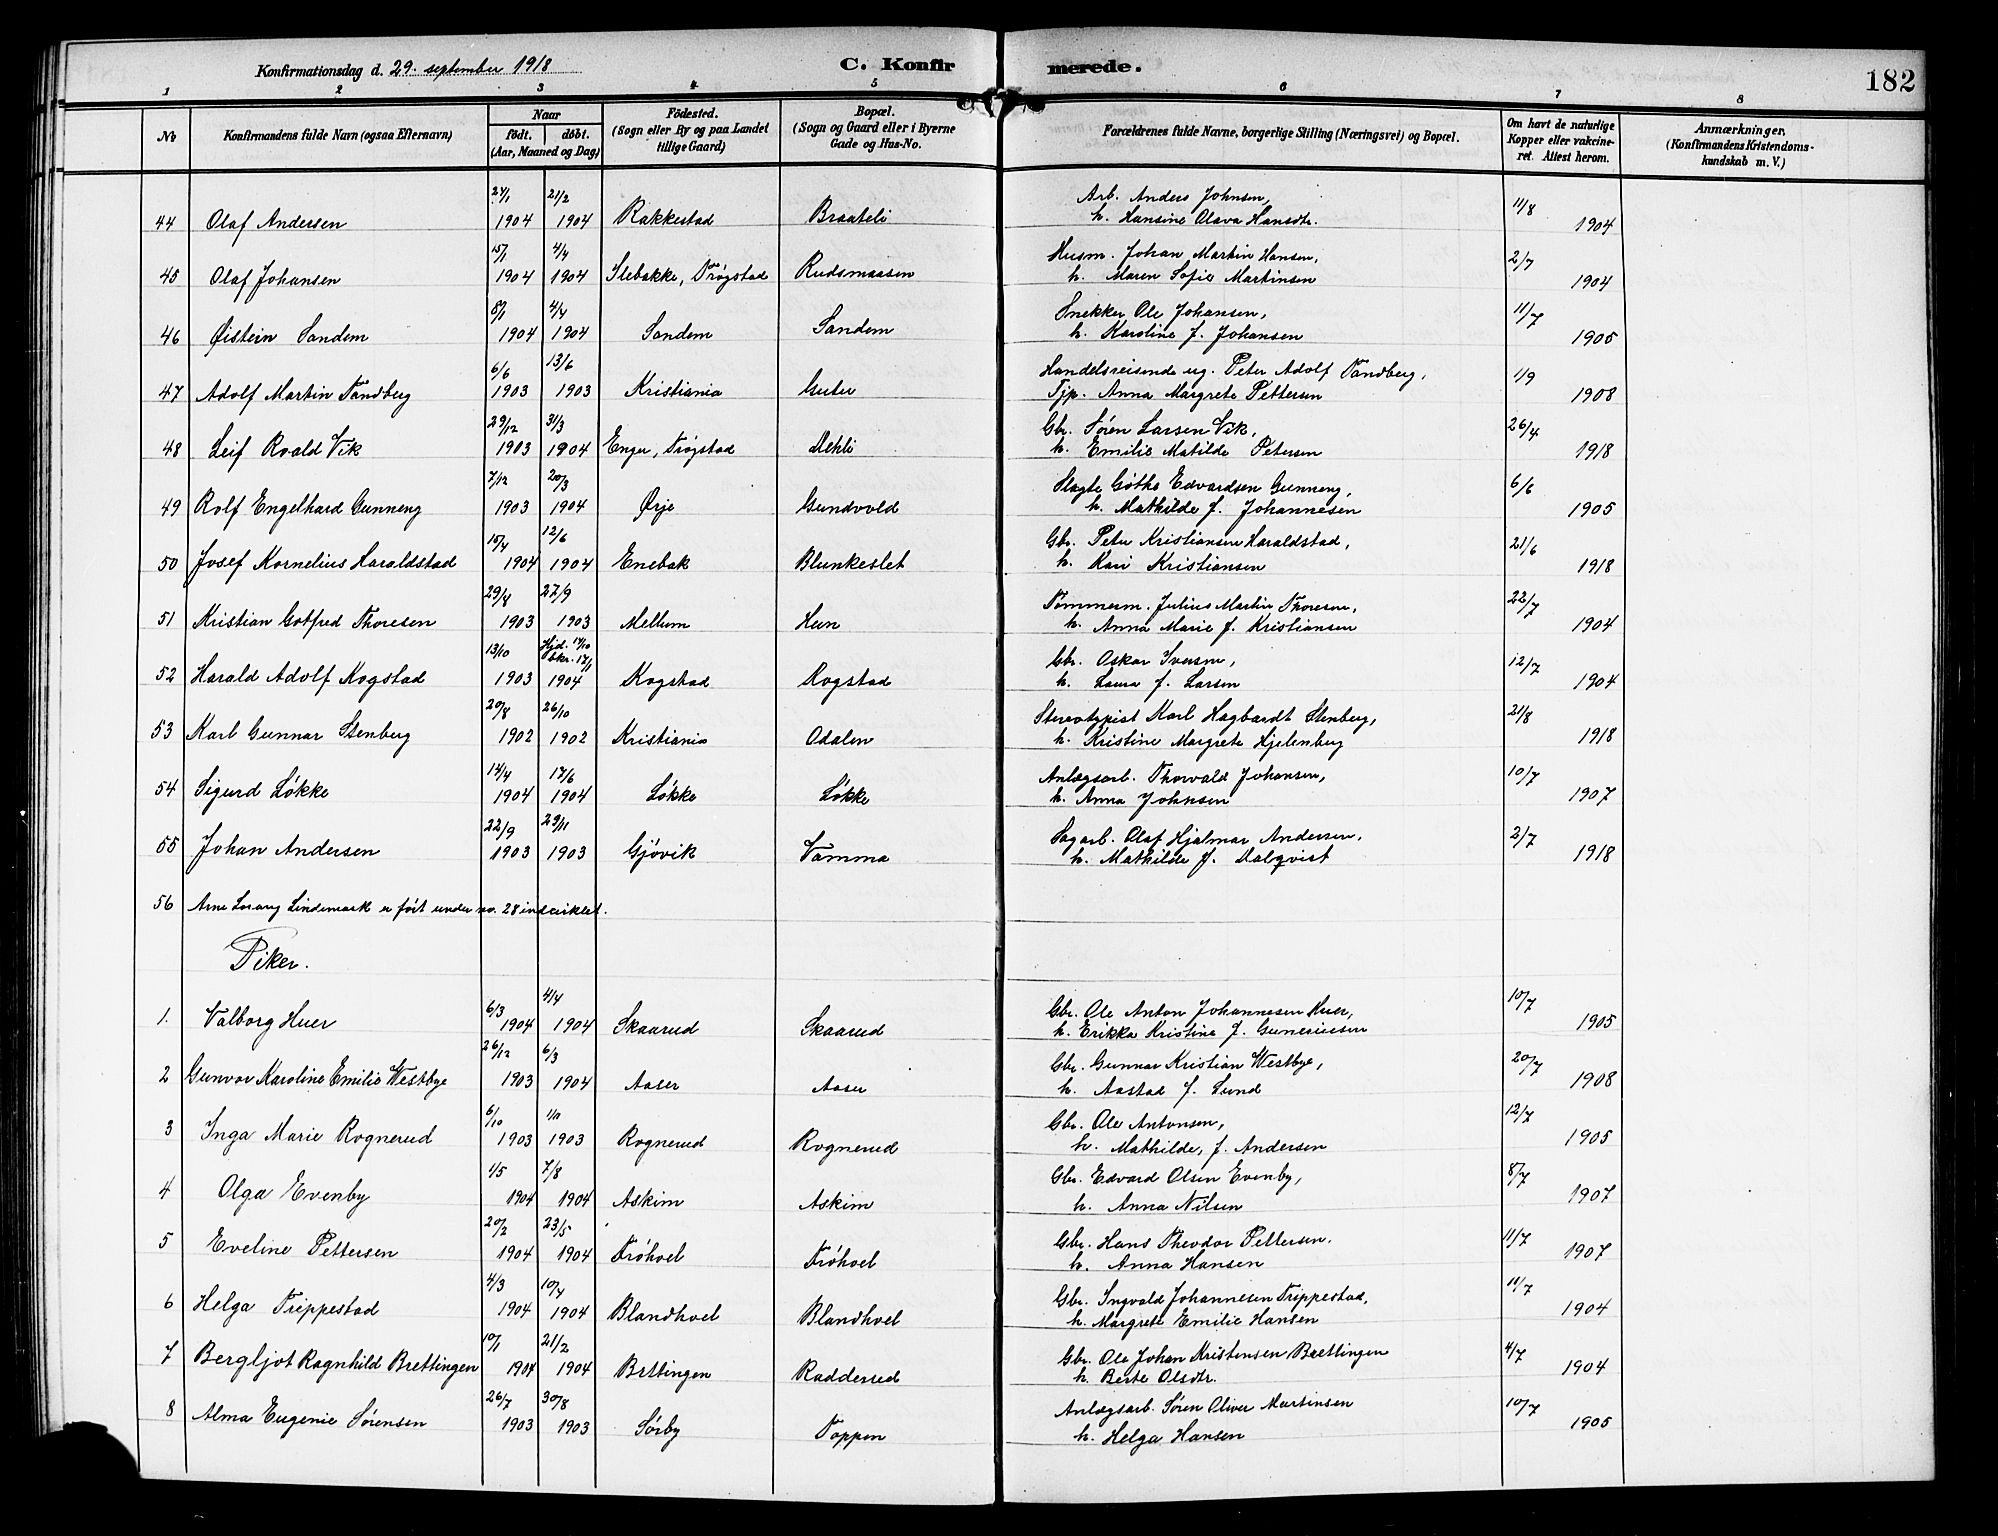 Konfirmationsdag d. 29. september 1918 C. Konfirmerede. 182
1 2 3 4 5 6 7 8
No Konfirmandens fulde Navn (ogsaa Efternavn) Naar født. døbt. (Aar, Maaned og Dag) Fødested. (Sogn eller By og paa Landet tillige Gaard) Bopæl. (Sogn og Gaard eller i Byerne Gade og Hus-No. Forældrenes fulde Navne, borgerlige Stilling (Næringsvei) og Bopæl. Om havt de naturlige Kopper eller vakcineret. Attest herom. Anmærkninger. (Konfirmandens Kristendomskundskab m. V.)
24/1 21/2 Arb. Anders Johnsen, 11/8
44 Olaf Andersen 1904 1904 Rakkestad Braateli h. Hansine Olava Hansdtr. 1904
15/1 4/4 Husm. Johan Martin Hansen, 2/7
45 Olaf Johansen 1904 1904 Slebakke, Trøgstad Rudsmaasen h. Maren Sofie Martinsen 1904
8/1 4/4 Snekker Ole Johansen, 11/7
46 Øistein Sandem 1904 1904 Sandem Sandem h. Karoline f. Johansen 1905
6/6 13/6 Handelsreisende ug. Peter Adolf Tandberg, 1/9
47 Adolf Martin Tandberg 1903 1903 Kristiania Guter Tjp. Anna Margrete Pettersen 1908
29/12 31/3 Gbr. Søren Larsen Vik, 26/4
48 Leif Roald Vik 1903 1904 Enger, Trøgstad Dehli h. Emilie Matilde Petersen 1918
7/12 20/3 Slagte Gøthe Edvardsen Gunneng, 6/6
49 Rolf Engelhard Gunneng 1903 1904 Ørje Gundvold h. Mathilde f. Johannesen 1905
15/4 12/6 Gbr. Peter Kristiansen Haraldstad, 21/6
50 Josef Kornelius Haraldstad 1904 1904 Enebak Blunkeslet h. Kari Kristiansen 1918
29/8 27/9 Tømmerm. Julius Martin Thoresen, 22/7
51 Kristian Gotfred Thoresen 1903 1903 Mellum Heen h. Anna Marie f. Kristiansen 1904
13/10 Hjd. 17/10 bkr. 17/1 Gbr. Oskar Iversen, 12/7
52 Harald Adolf Kogstad 1903 1904 Kogstad Rogstad h. Laura f. Larsen 1904
20/8 26/10 Stereotypist Karl Hagbardt Stenberg, 21/8
53 Karl Gunnar Stenberg 1902 1902 Kristiania Odalen h. Kristine Margrete Hjelenberg 1918
14/4 12/6 Anlægsarb. Thorvald Johansen, 10/7
54 Sigurd Løkke 1904 1904 Løkke Løkke h. Anna Johnsen 1907
22/9 29/11 Sagarb. Olaf Hjalmar Andersen, 2/7
55 Johan Andersen 1903 1903 Gjøvik Vamma h. Mathilde f. Dalqvist 1918
56 Arne Lorang Lindemark er ført under no. 28 indcirklet.
Piker.
6/3 4/4 Gbr. Ole Anton Johannesen Huer, 10/7
1. Valborg Huer 1904 1904 Skaarud Skaarud h. Erikka Kristine f. Gunerinsen 1905
26/12 6/3 Gbr. Gunnar Kristian Westbye, 20/7
2 Gunvor Karoline Emilie Westbye 1903 1904 Aaser Aaser h. Aastad f. Lund 1908
6/10 1/11 Gbr. Ole Antonsen, 12/7
3 Inga Marie Rognerud 1903 1903 Rognerud Rognerud h. Mathilde, f. Andersen 1905
1/5 7/8 Gbr. Edvard Olsen Evenby, 8/7
4 Olga Evenby 1904 1904 Askim Askim h. Anna Nilsen 1907
20/2 23/5 Gbr. Hans Theodor Pettersen, 11/7
5 Eveline Pettersen 1904 1904 Frøhoel Frøhoel h. Anna Hansen 1907
4/3 10/4 Gbr. Ingvald Johannesen Trippestad, 11/7
6 Helga Trippestad 1904 1904 Blandhoel Blandhoel h. Margrete Emilie Hansen 1904
10/1 21/2 Gbr. Ole Johan Kristensen Brettingen 4/7
7 Bergljot Ragnhild Brettingen 1904 1904 Brttingen Radderud h. Berte Olsdtr. 1904
26/7 30/8 Anlægsarb. Søren Oliver Martinsen 10/7
8 Alma Eugenie Sørensen 1903 1903 Sørby Toppen h. Helga Hansen 1905